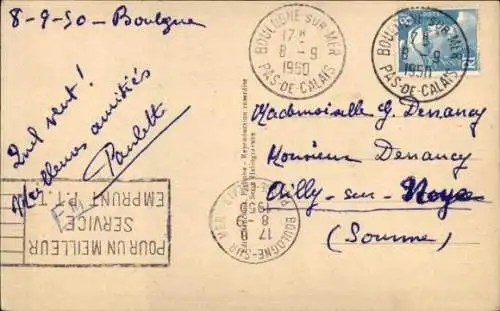 8-9-50 - Boulogne
Quel vent!
Meilleures amitiés
Paulette
BOULOGNE-SUR-MER
17 H
8 - 9
1950
PAS-DE-CALAIS
BOULOGNE-SUR-MER
17 H
8 - 9
1950
PAS-DE-CALAIS
Mademoiselle G. Denancy
Monsieur Denancy
Ailly-sur-Noye
(Somme)
Reproduction interdite
POUR UN MEILLEUR
SERVICE
EMPRUNT P.T.T.
BOULOGNE-SUR-MER
17 H
8 - 9
1950